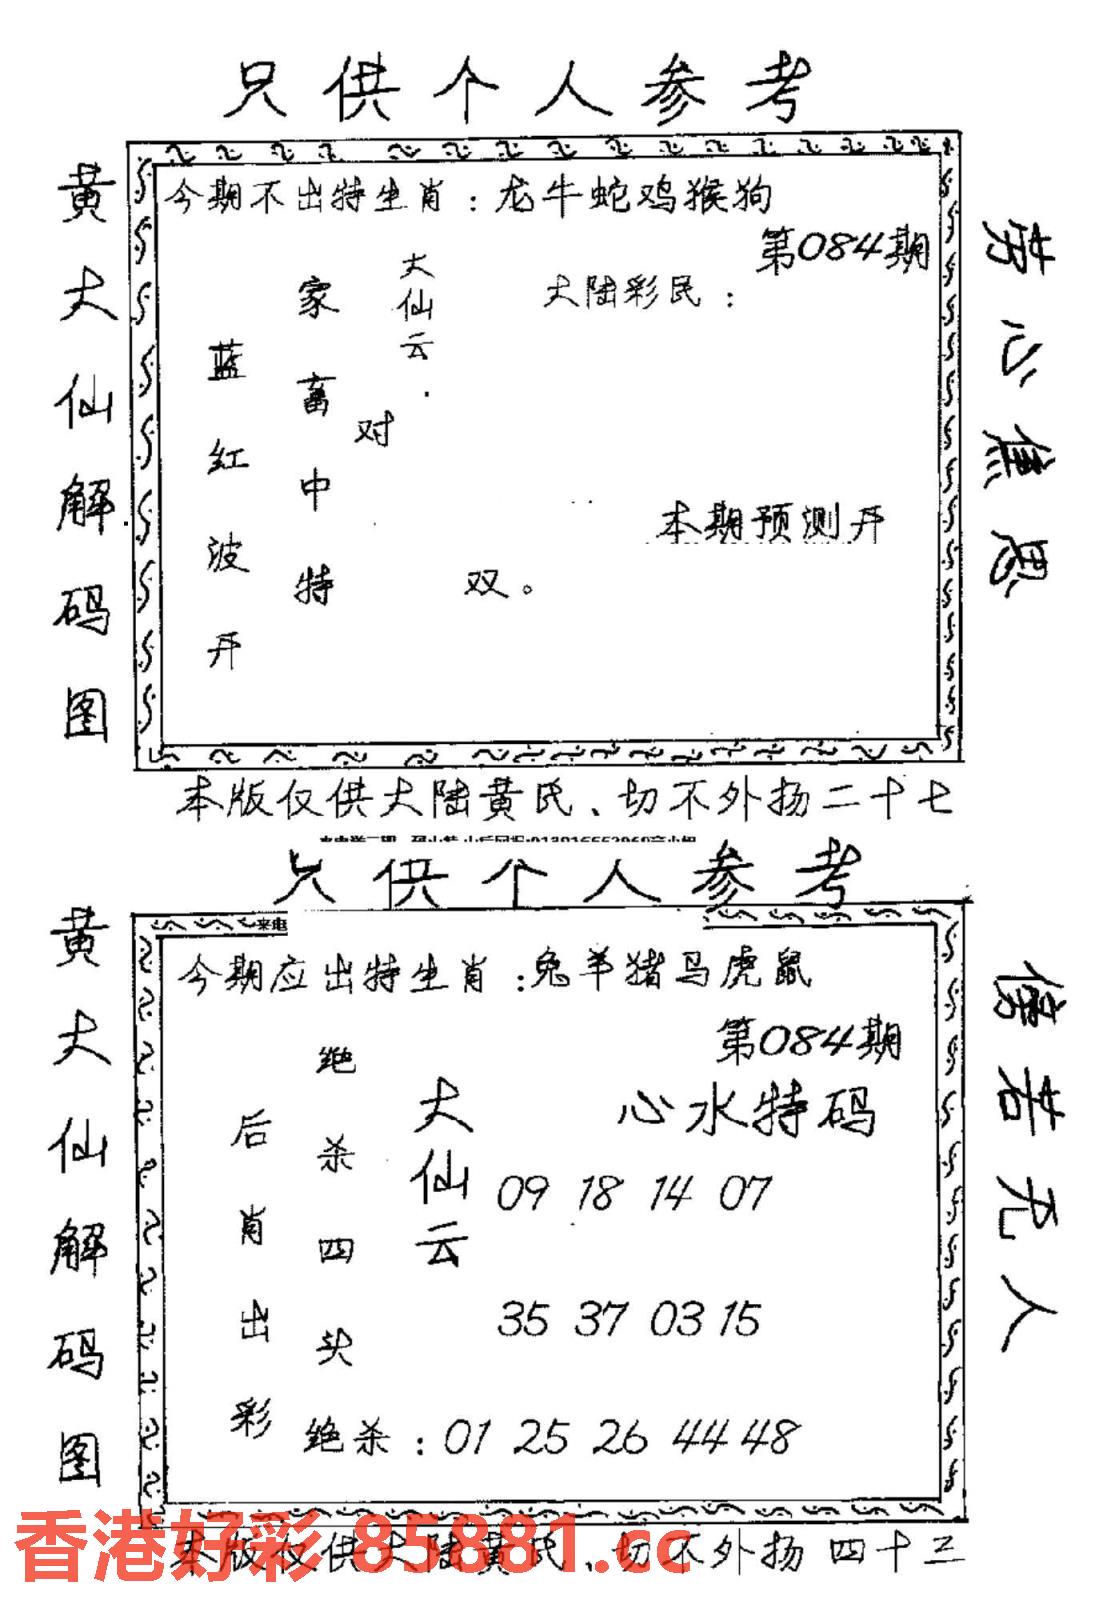 只供个人参考
黄大仙解码图
今期不出特生肖：龙牛蛇鸡猴狗
第084期
大陆彩民：
大仙云
家畜中特
对
双。
蓝红波开
本期预测开
劳心焦思
本版仅供大陆黄氏、切不外扬二十七
只供个人参考
黄大仙解码图
来电
今期应出特生肖：兔羊猪马虎鼠
第084期
心水特码
大仙云
绝杀四头
后肖出彩
09 18 14 07
35 37 03 15
绝杀：01 25 26 44 48
傍若无人
香港好彩 85881.cc
本版仅供大陆黄氏、切不外扬四十三